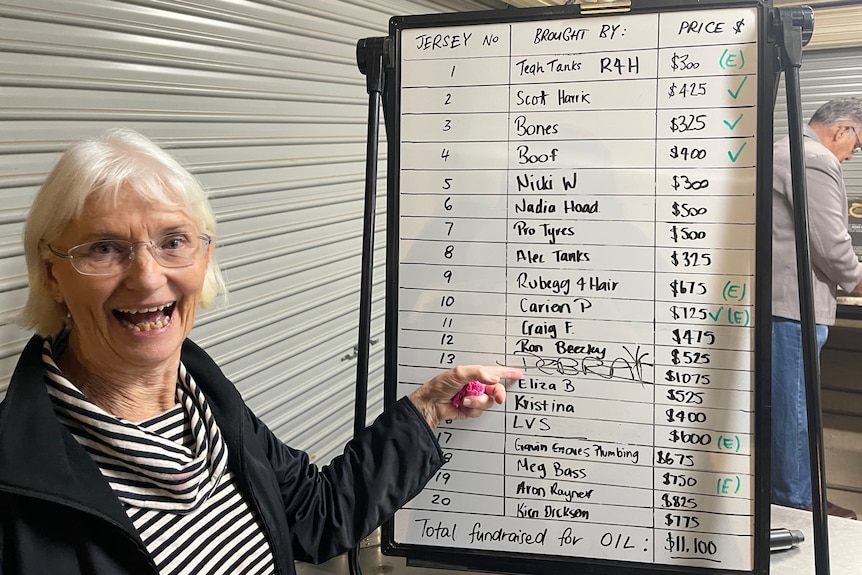 JERSEY No BROUGHT BY: PRICE $
1 Teah Tanks R4H $300 (E)
2 Scott Harris $425 ✓
3 Bones $325 ✓
4 Boof $400 ✓
5 Nicki W $300
6 Nadia Hoad $500
7 Pro Tyres $500
8 Alec Tanks $325
9 Rubegg 4 Hair $675 (E)
10 Carien P $725 ✓ (E)
11 Craig F. $475
12 Ron Beezley $525
13 DEBRA $1075
Eliza B $525
Kristina $400
LVS $600 (E)
17 Gavin Groves Plumbing $675
Meg Bass $750 (E)
19 Aron Rayner $825
20 Kien Dickson $775
Total fundraised for OIL: $11,100